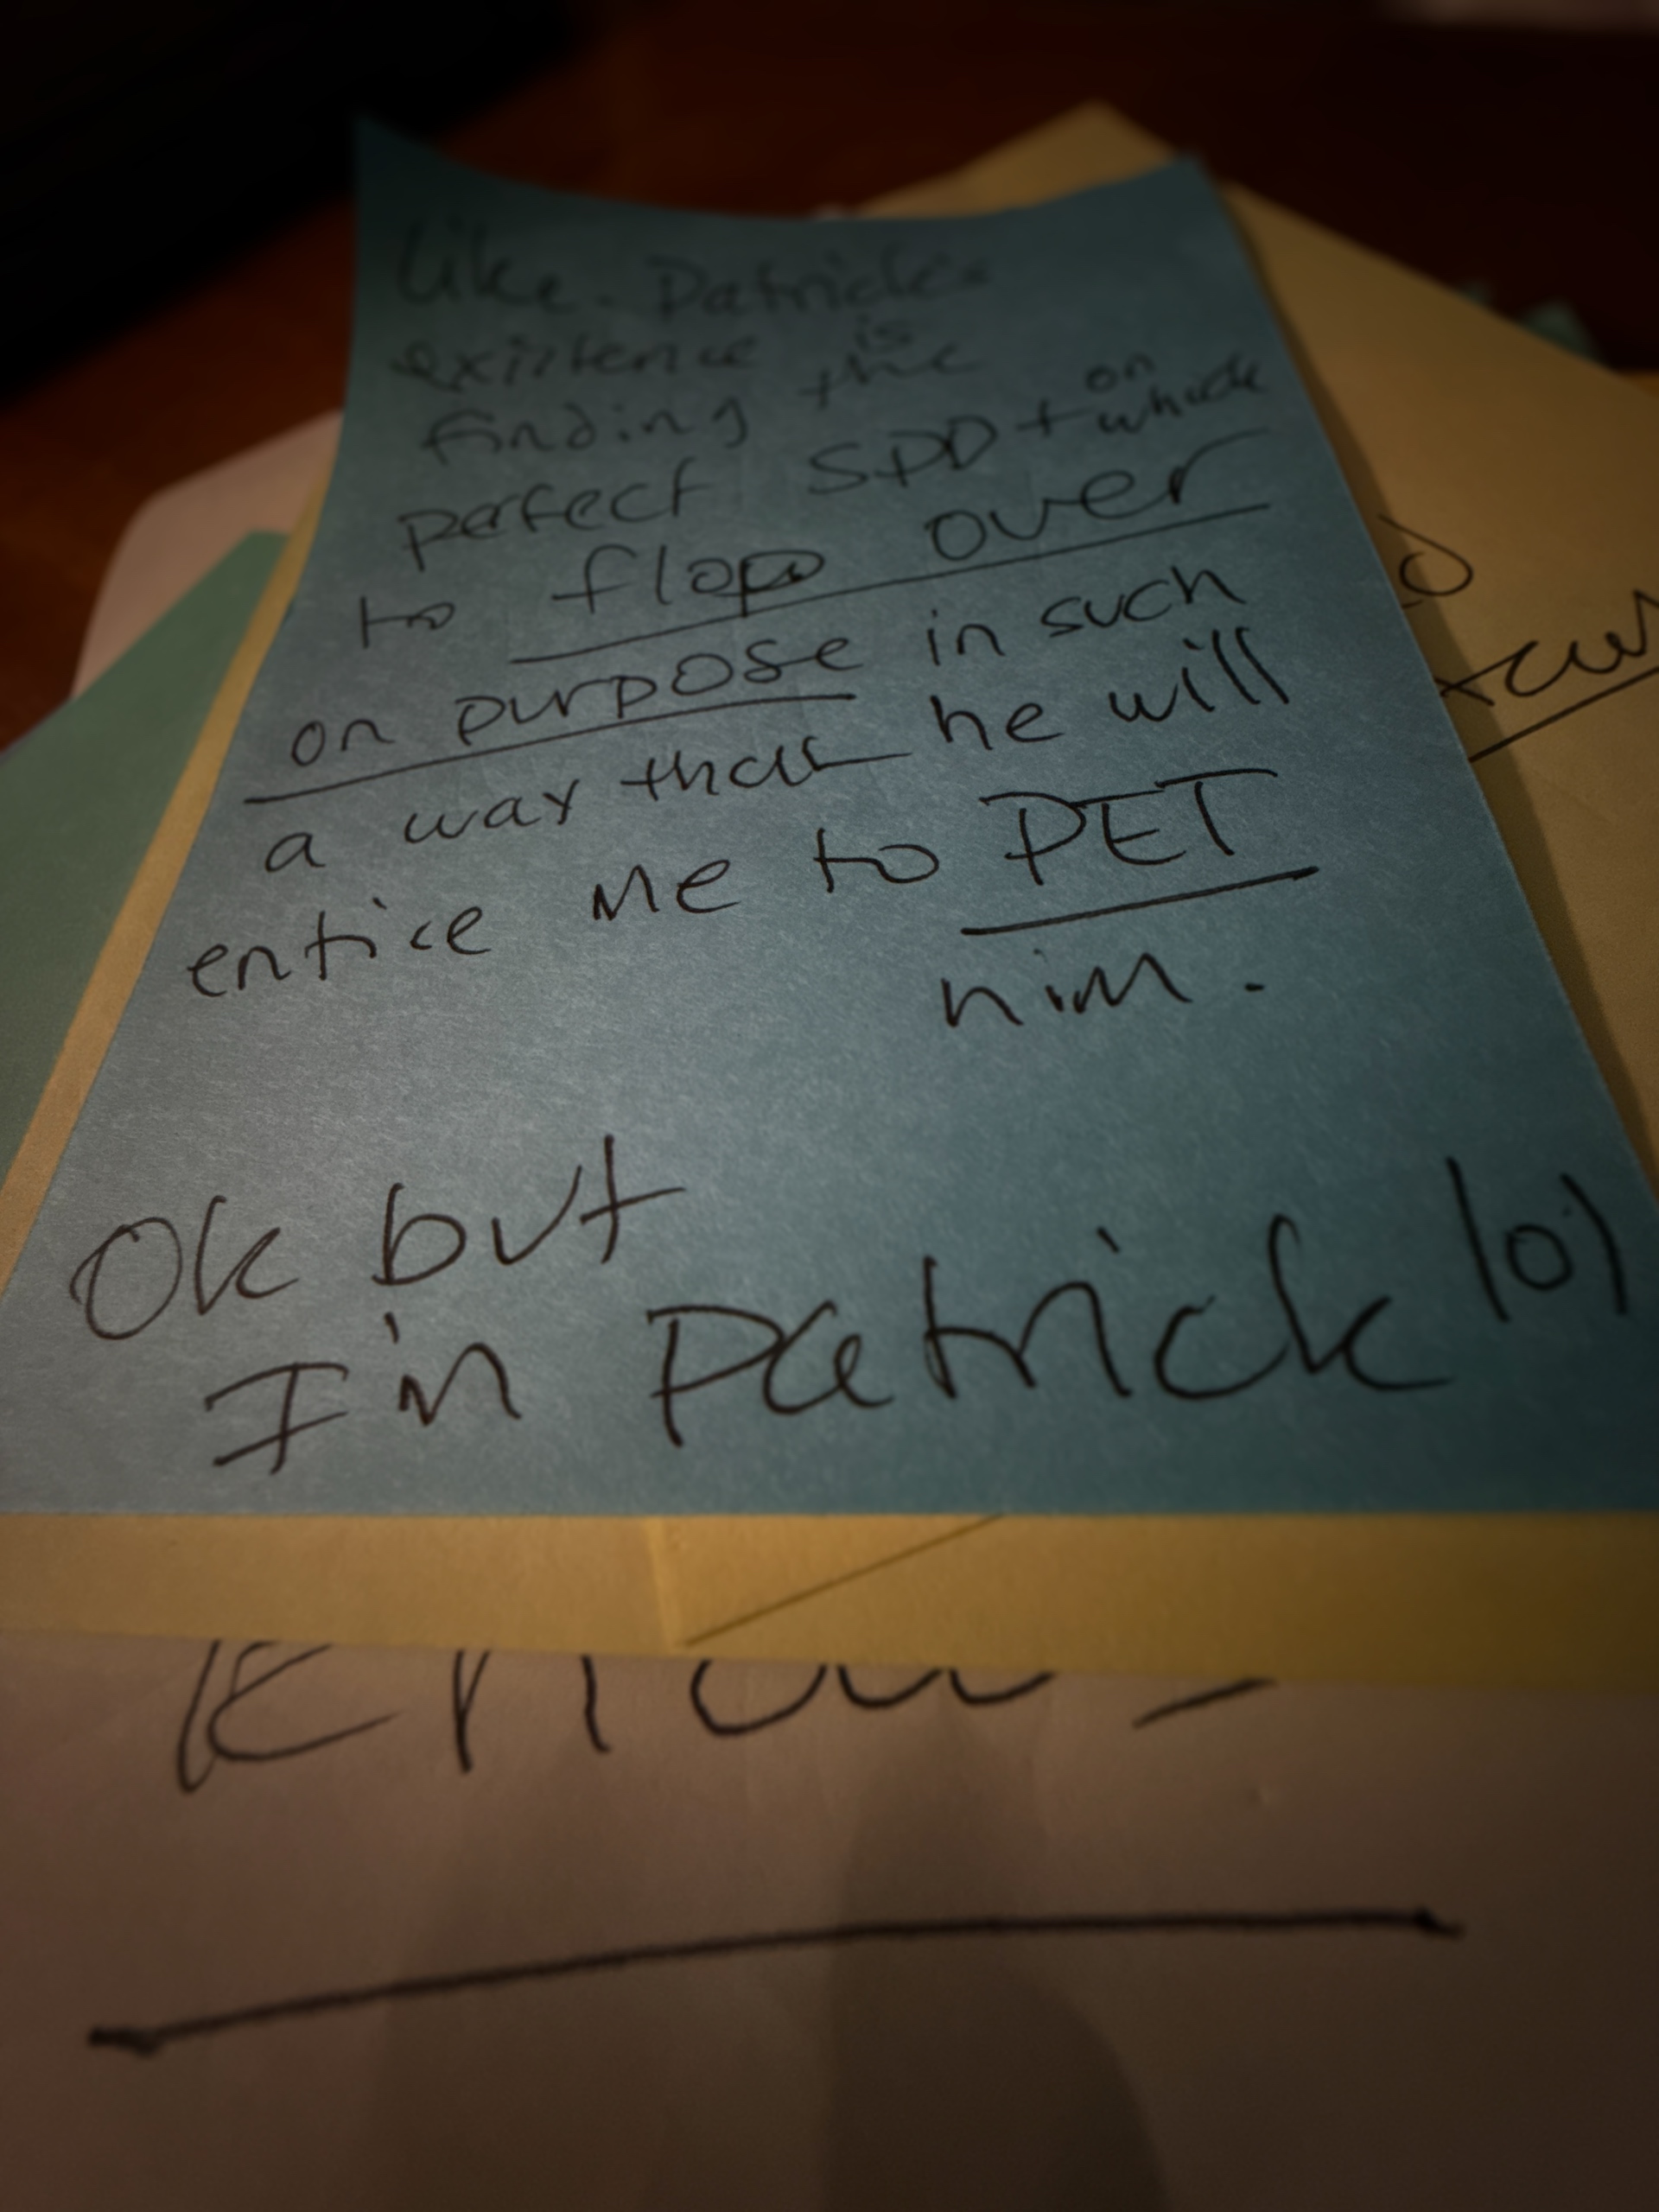 Like. Patrick's
existence is
finding the
perfect SPD + on which
to flop over
on purpose in such
a way that he will
entice me to PET
him.
Ok but
I'm Patrick lol